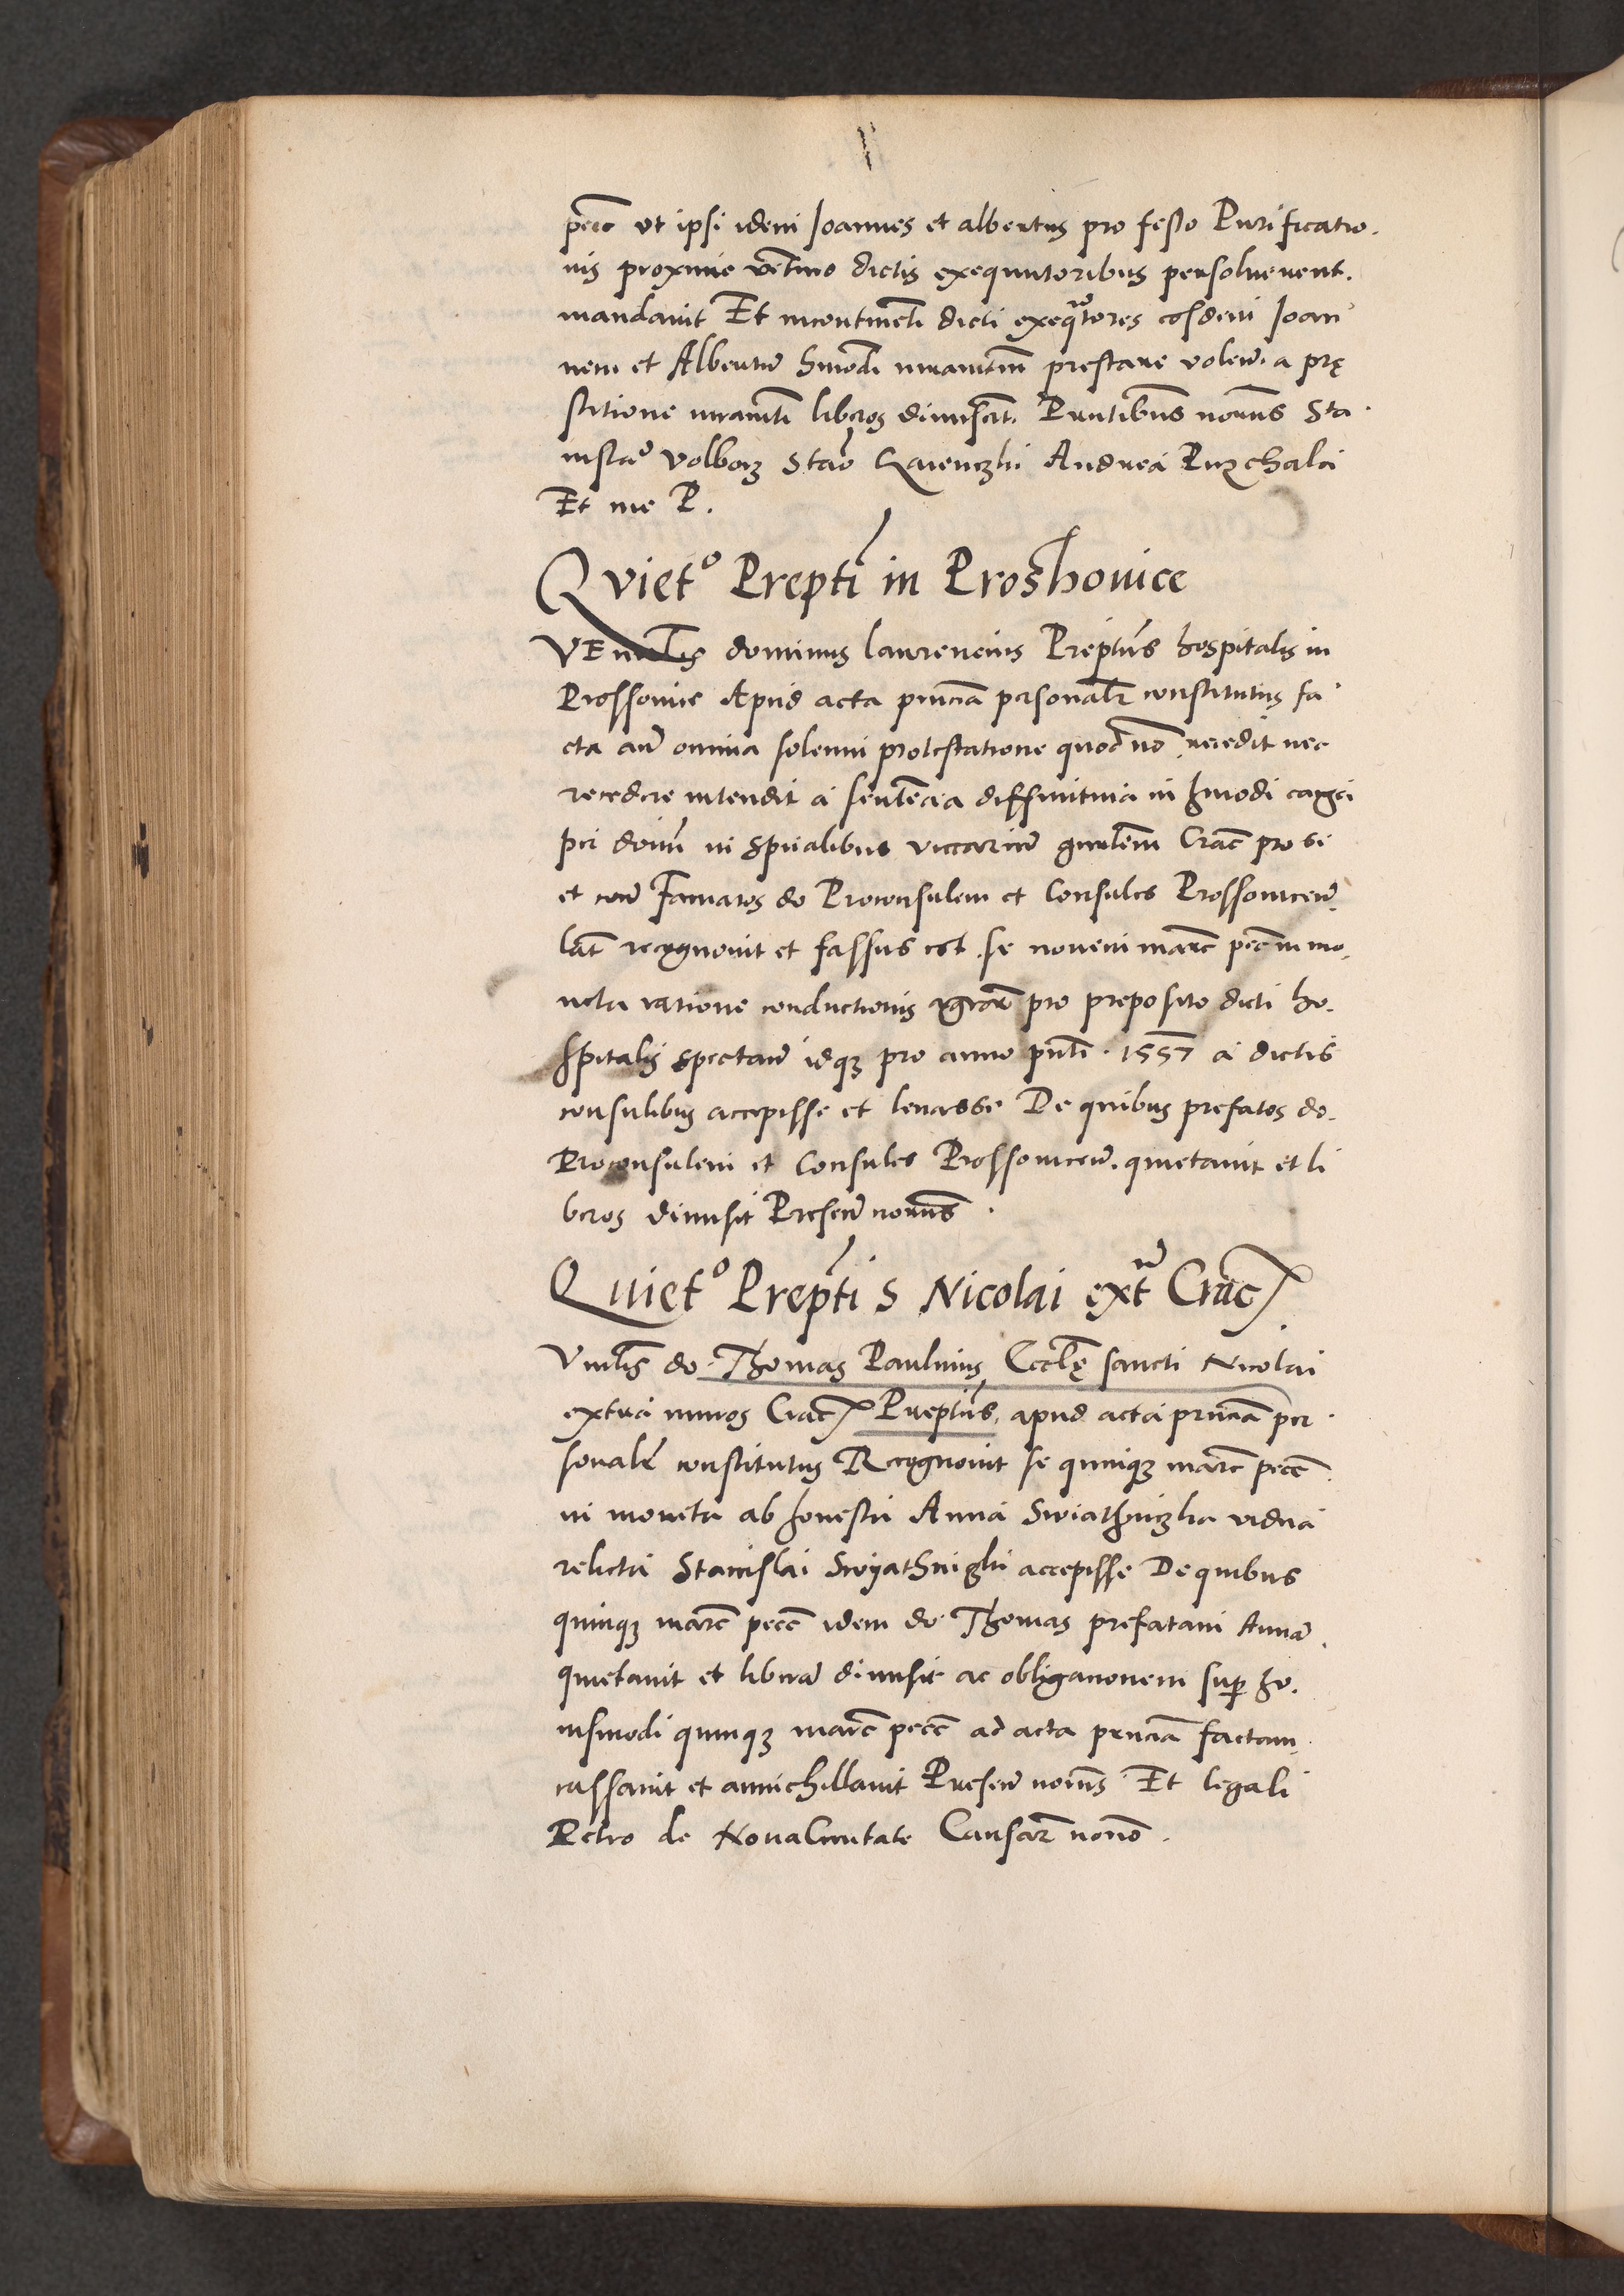 pecc ut ipsi idem Joannes et albertus pro festo Purificatio.
nis proxime ventuo dictis exequutoribus persolverent.
mandavit Et incontinenti dicti exeqtores eosdem Joan
nem et Albertum hmodi iuramtum prestare volen. a prę
stitione iuramti liberos dimiserunt. Prntibus nobus Sta
nislao Volborz Stao Andrea
Et me P.
Quieto Prepti in Proshovice
VEnelis dominus laurencius Preptus hospitalis in
Prossovice Apud acta prncia personalr constitutus fa
cta an omnia solenni protestatione quod no recedit nec
recedere intendit a sentencia diffinitiva in hmodi causa
per dnum in spualibus viccarium gnralem Crac pro se
et con Famatos do Proconsulem et Consules Prossovicen
lat recognovit et fassus est se novem marc pecc in mo
neta ratione conductionis agror pro preposito dicti ho.
spitalis spectan idqz pro anno pnti 1557 a dictis
consulibus accepisse et levasse De quibus prefatos do.
Proconsulem et Consules Prossovicen. quietavit et li
beros dimisit Presen nobus.
Quieto Prepti S Nicolai extra Crac
Vnelis do Thomas Paulinus Eccle sancti Nicolai
extra muros Crac Preptus, apud acta prncia per
sonalr constitutus Recognovit se quinqz marc pecc
in moneta ab honesta Anna Swiathniczka vidua
relicta Stanislai Swyathniczki accepisse De quibus
quinqz marc pecc idem do Thomas prefatam Annam
quietavit et liberam dimisit ac obligationem sup hu
iusmodi quinqz marc pecc ad acta prncia factam
cassavit et annichillavit Presen nobus Et legali
Petro de Nova Civitate Causar noto.